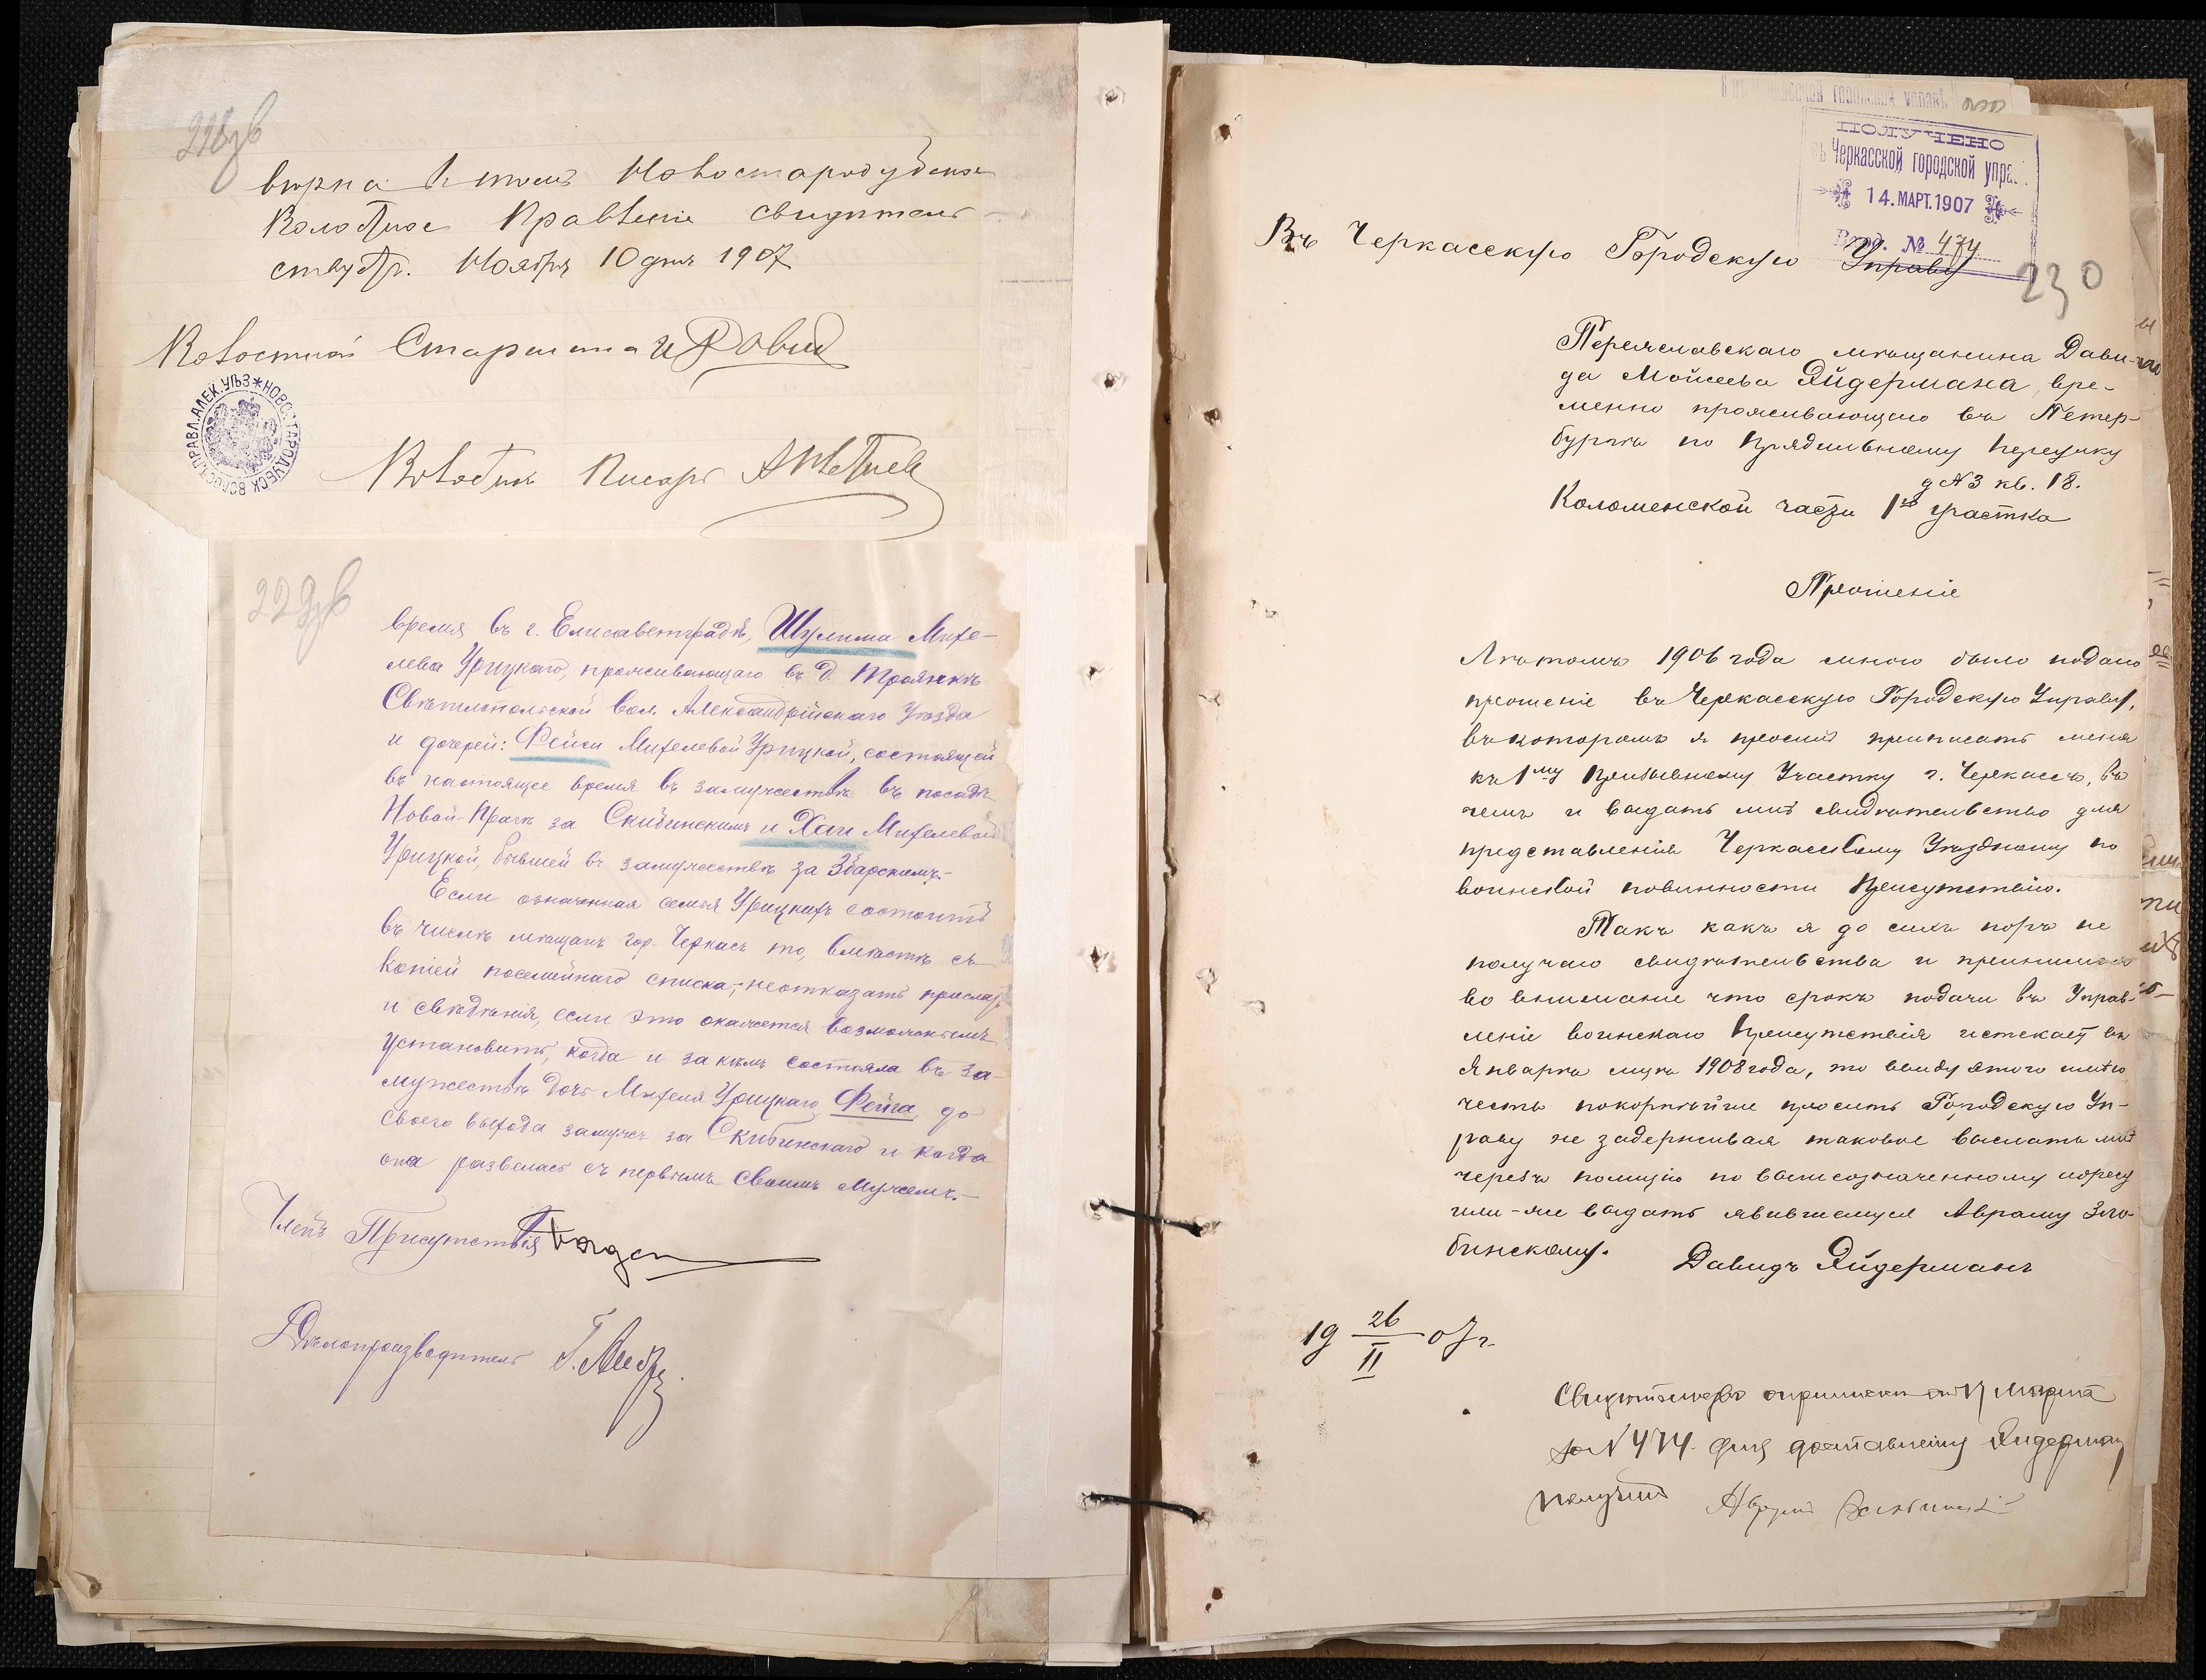 228об
вѣрна въ томъ Новостародубское
Волостное Правленіе свидѣтель-
ствуетъ. Ноября 10 дня 1907
Волостной Старшина
НОВОСТАРОДУБСК. ВОЛОСТ. ПРАВЛ. АЛЕК. УѢЗ
Волостной Писарь
229об
время въ г. Елисаветградѣ, Шулима Михе-
лева Урицкаго, проживающаго въ д. Троянкѣ
Свѣтлопольской вол. Александрійскаго Уѣзда
и дочерей: Фейги Михелевой Урицкой, состоящей
въ настоящее время въ замужествѣ въ посадѣ
Новой-Прагѣ за Скибинскимъ и Хаи Михелевой
Урицкой, бывшей въ замужествѣ за Збарскимъ.-
Если означенная семья Урицкихъ состоитъ
въ числѣ мѣщанъ гор. Черкасъ то, вмѣстѣ съ
копіей посемейнаго списка,-неотказать прислать
и свѣдѣнія, если это окажется возможнымъ
установить, когда и за кѣмъ состояла въ за-
мужествѣ дочь Михеля Урицкаго Фейга, до
своего выхода замужъ за Скибинскаго и когда
она развелась съ первымъ своимъ мужемъ.-
Членъ Присутствія
Дѣлопроизводитель
ПОЛУЧЕНО
въ Черкасской городской упра.
14. МАРТ. 1907
Вход. № 474
230
Въ Черкасскую Городскую Управу
Переяславскаго мѣщанина Дави-
да Мойсеева Эйдермана, вре-
менно проживающаго въ Петер-
бургѣ по Прядильному переулку
д №3 кв. 18.
Коломенской части 1го участка
Прошеніе
Лѣтомъ 1906 года мною было подано
прошеніе въ Черкасскую Городскую Управу,
въ которомъ я просилъ приписать меня
къ 1му Призывному Участку г. Черкассъ, въ
чемъ и выдать мнѣ свидѣтельство для
представленія Черкасскому Уѣздному по
воинской повинности Присутствію.
Такъ какъ я до сихъ поръ не
получаю свидѣтельства и принимая
во вниманіе что срокъ подачи въ Управ-
леніе воинскаго Присутствія истекаетъ въ
Январѣ мцѣ 1908 года, то ввиду этого имѣю
честь покорнѣйше просить Городскую Уп-
раву не задерживая таковое выслать мнѣ
черезъ полицію по вышеозначенному адресу
или-же выдать явившемуся Авраму Зло-
бинскому. Давидъ Эйдерманъ
19 26/II 07 г.
Свидѣтельство о припискѣ отъ 17 Марта
за N 474 для доставленія Эйдерману
получилъ Аврумъ